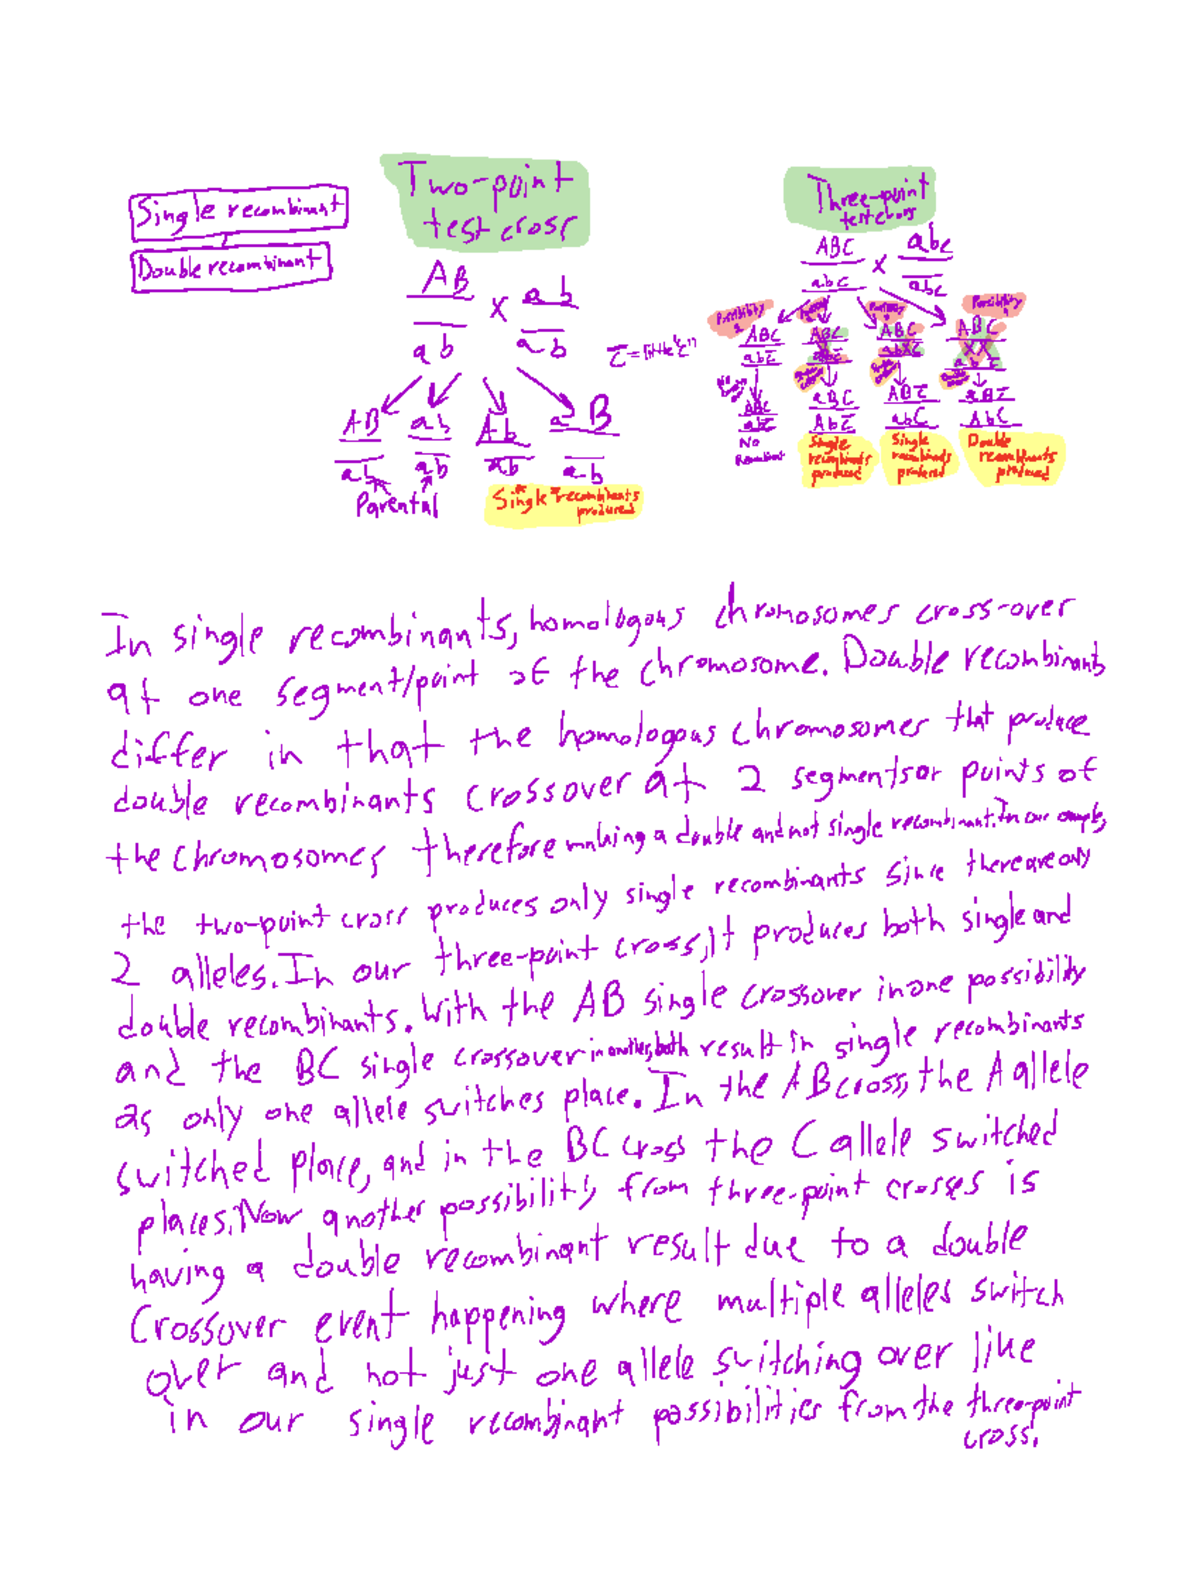 Single recombinant
Double recombinant
Two-point
test cross
AB
ab
x
ab
ab
AB
ab
ab
ab
Ab
ab
aB
ab
Parental
Single recombinants
produced
Three-point
test cross
ABC
abc
x
abc
abc
c̅ = little "c"
Possibility
ABC
abc̅
ABC
abc̅
No
Recombinant
Possibility
ABC
abc̅
aBC
Abc̅
Single
recombinants
produced
Possibility
ABC
abc̅
ABc̅
abC
Single
recombinants
produced
Possibility
ABC
abc̅
aBc̅
AbC
Double
recombinants
produced
In single recombinants, homologous chromosomes cross-over
at one segment/point of the chromosome. Double recombinants
differ in that the homologous chromosomes that produce
double recombinants crossover at 2 segments or points of
the chromosomes therefore making a double and not single recombinant. In our example,
the two-point cross produces only single recombinants since there are only
2 alleles. In our three-point cross, it produces both single and
double recombinants. With the AB single crossover in one possibility
and the BC single crossover in another, both result in single recombinants
as only one allele switches place. In the AB cross, the A allele
switched place, and in the BC cross the C allele switched
places. Now another possibility from three-point crosses is
having a double recombinant result due to a double
crossover event happening where multiple alleles switch
over and not just one allele switching over like
in our single recombinant possibilities from the three-point
cross.